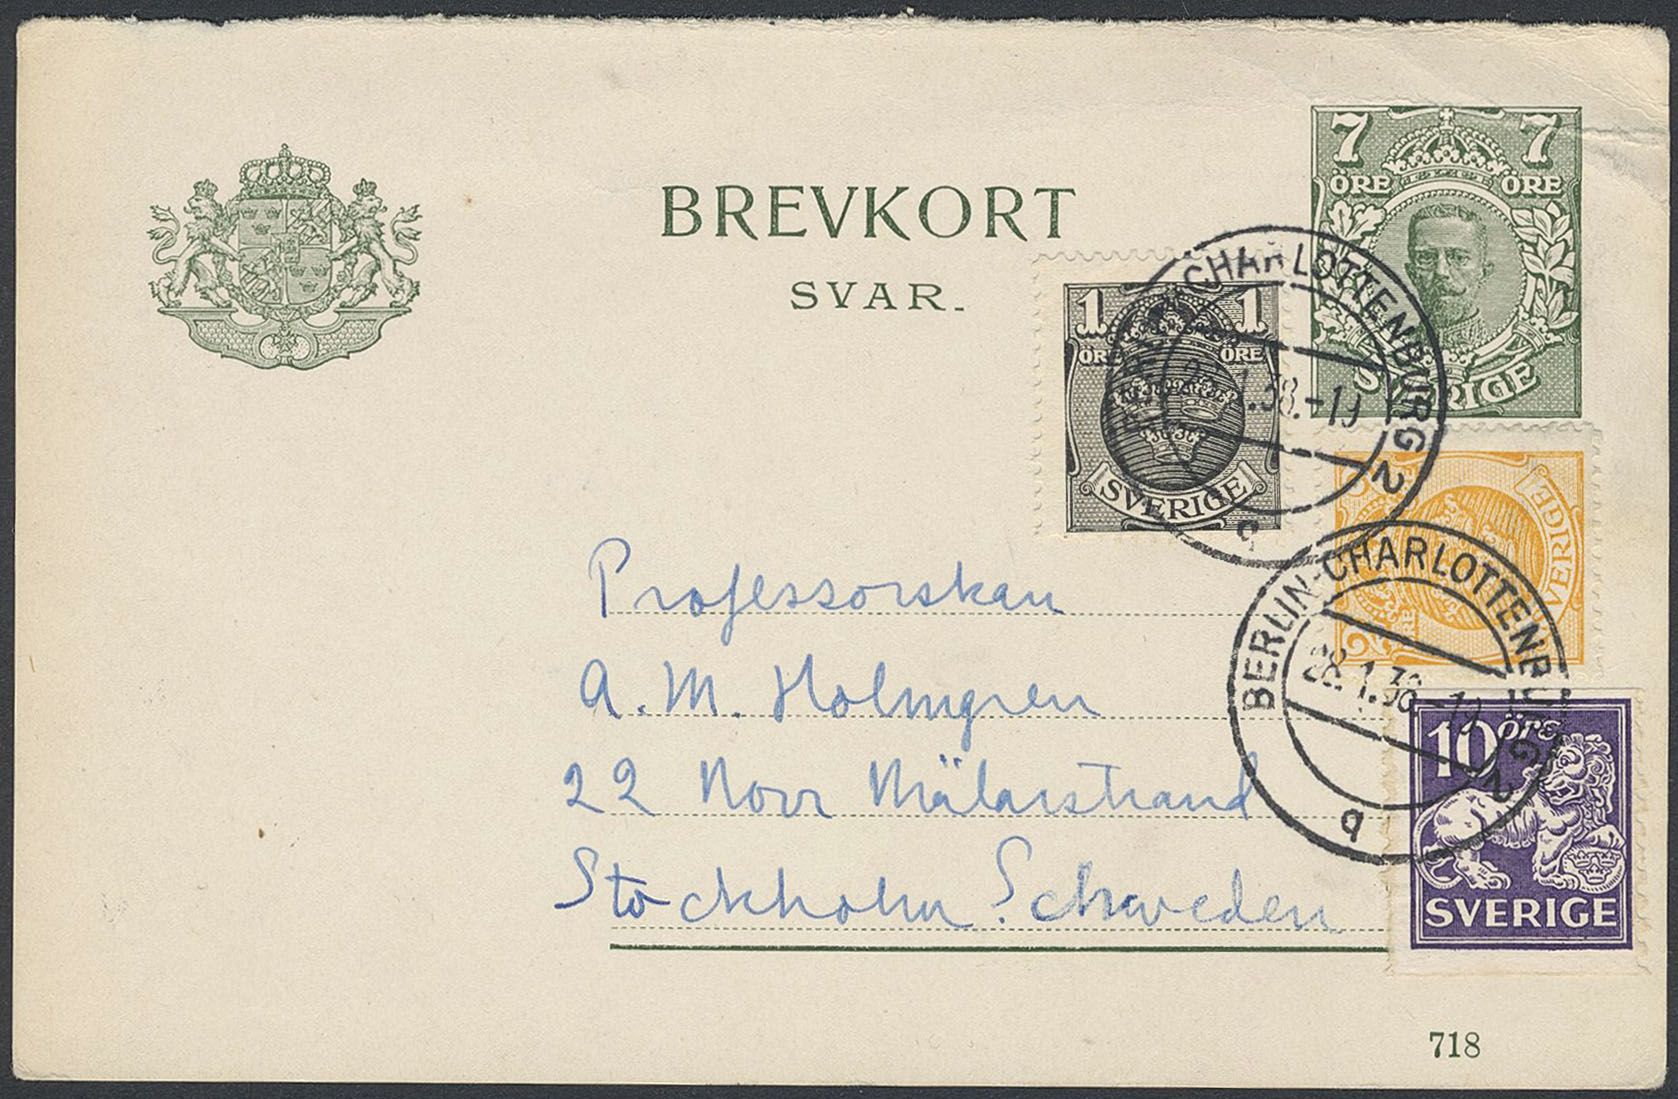 BREVKORT
SVAR.
7 7
ÖRE ÖRE
SVERIGE
1 1
ÖRE ÖRE
SVERIGE
BERLIN-CHARLOTTENBURG 2
1.38.-19
a
2
SVERIGE
BERLIN-CHARLOTTENBURG 2
28.1.38-19
q
10 ÖRE
SVERIGE
Professorskan
A. M. Holmgren
22 Norr Mälarstrand
Stockholm. Schweden
718